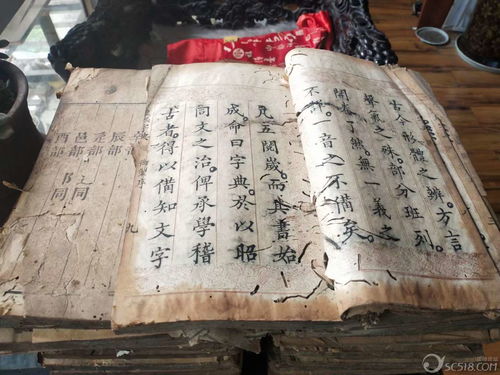 古今形體之辨。方言
聲氣之殊。部分班列。
開卷了然。無一義之
不詳。一音之不備矣。
凡五閱歲。而其書始
成。命曰字典。於以昭
同文之治。俾承學稽
古者。得以備知文字
辰部
辵部 辶同
邑部 阝同
酉部
SC518.COM